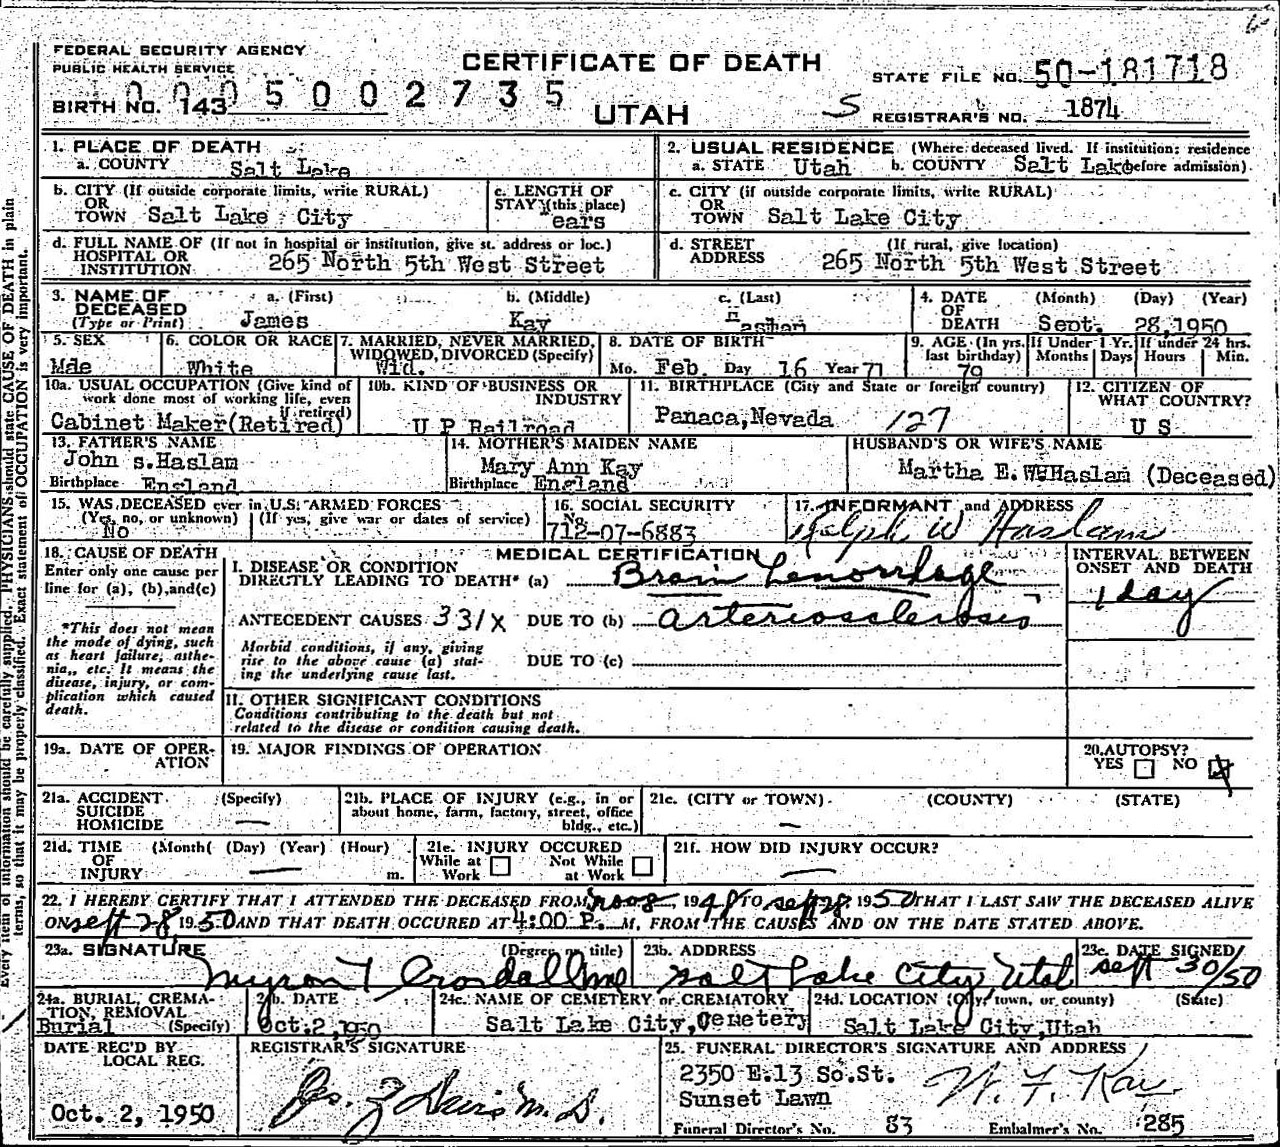 FEDERAL SECURITY AGENCY
PUBLIC HEALTH SERVICE
CERTIFICATE OF DEATH
STATE FILE NO. 50-181718
0005002735
BIRTH NO. 143
UTAH
S
REGISTRAR'S NO. 1874
1. PLACE OF DEATH
a. COUNTY Salt Lake
2. USUAL RESIDENCE (Where deceased lived. If institution; residence before admission)
a. STATE Utah b. COUNTY Salt Lake
b. CITY (If outside corporate limits, write RURAL)
OR
TOWN Salt Lake City
c. LENGTH OF
STAY (this place)
Years
c. CITY (if outside corporate limits, write RURAL)
OR
TOWN Salt Lake City
d. FULL NAME OF (If not in hospital or institution, give st. address or loc.)
HOSPITAL OR
INSTITUTION 265 North 5th West Street
d. STREET (If rural, give location)
ADDRESS 265 North 5th West Street
3. NAME OF
DECEASED
(Type or Print)
a. (First) James
b. (Middle) Kay
c. (Last) Haslam
4. DATE
OF
DEATH
(Month) (Day) (Year)
Sept. 28,1950
5. SEX
Male
6. COLOR OR RACE
White
7. MARRIED, NEVER MARRIED,
WIDOWED, DIVORCED (Specify)
Wid.
8. DATE OF BIRTH
Mo. Feb. Day 16 Year 71
9. AGE (In yrs. last birthday)
79
If Under 1 Yr.
Months Days
If under 24 hrs.
Hours Min.
10a. USUAL OCCUPATION (Give kind of
work done most of working life, even
if retired)
Cabinet Maker(Retired)
10b. KIND OF BUSINESS OR
INDUSTRY
U P Railroad
11. BIRTHPLACE (City and State or foreign country)
Panaca,Nevada 127
12. CITIZEN OF
WHAT COUNTRY?
U S
13. FATHER'S NAME
John s.Haslam
Birthplace England
14. MOTHER'S MAIDEN NAME
Mary Ann Kay
Birthplace England
HUSBAND'S OR WIFE'S NAME
Martha E.W.Haslam (Deceased)
15. WAS DECEASED ever in U.S. ARMED FORCES
(Yes, no, or unknown) (If yes, give war or dates of service)
No
16. SOCIAL SECURITY
No.
712-07-6883
17. INFORMANT and ADDRESS
Ralph W Haslam
18. CAUSE OF DEATH
Enter only one cause per
line for (a), (b),and(c)
*This does not mean
the mode of dying, such
as heart failure, asthe-
nia,, etc. It means the
disease, injury, or com-
plication which caused
death.
MEDICAL CERTIFICATION
I. DISEASE OR CONDITION
DIRECTLY LEADING TO DEATH* (a) Brain hemorrhage
ANTECEDENT CAUSES 331X DUE TO (b) arteriosclerosis
Morbid conditions, if any, giving
rise to the above cause (a) stat-
ing the underlying cause last.
DUE TO (c)
INTERVAL BETWEEN
ONSET AND DEATH
1 day
II. OTHER SIGNIFICANT CONDITIONS
Conditions contributing to the death but not
related to the disease or condition causing death.
19a. DATE OF OPER-
ATION
19. MAJOR FINDINGS OF OPERATION
20. AUTOPSY?
YES NO
21a. ACCIDENT (Specify)
SUICIDE
HOMICIDE —
21b. PLACE OF INJURY (e.g., in or
about home, farm, factory, street, office
bldg., etc.)
21c. (CITY or TOWN) (COUNTY) (STATE)
—
21d. TIME (Month( (Day) (Year) (Hour)
OF
INJURY — m.
21e. INJURY OCCURED
While at Work Not While at Work
21f. HOW DID INJURY OCCUR?
—
22. I HEREBY CERTIFY THAT I ATTENDED THE DECEASED FROM 1948 TO sept 28 1950 THAT I LAST SAW THE DECEASED ALIVE
ON sept 28 1950 AND THAT DEATH OCCURED AT 4:00 P. M, FROM THE CAUSES AND ON THE DATE STATED ABOVE.
23a. SIGNATURE (Degree or title)
Myron L Crandall MD
23b. ADDRESS
Salt Lake City, Utah
23c. DATE SIGNED
sept 30/50
24a. BURIAL, CREMA-
TION, REMOVAL
Burial (Specify)
24b. DATE
Oct.2,1950
24c. NAME OF CEMETERY OR CREMATORY
Salt Lake City,Cemetery
24d. LOCATION (City, town, or county) (State)
Salt Lake City,Utah
DATE REC'D BY
LOCAL REG.
Oct. 2, 1950
REGISTRAR'S SIGNATURE
Jas. Z Davis M.D.
25. FUNERAL DIRECTOR'S SIGNATURE AND ADDRESS
2350 E.13 So.St.
Sunset Lawn
W. F. Kay
Funeral Director's No. 83 Embalmer's No. 285
Every item of information should be carefully supplied. PHYSICIANS should state CAUSE OF DEATH in plain
terms, so that it may be properly classified. Exact statement of OCCUPATION is very important.